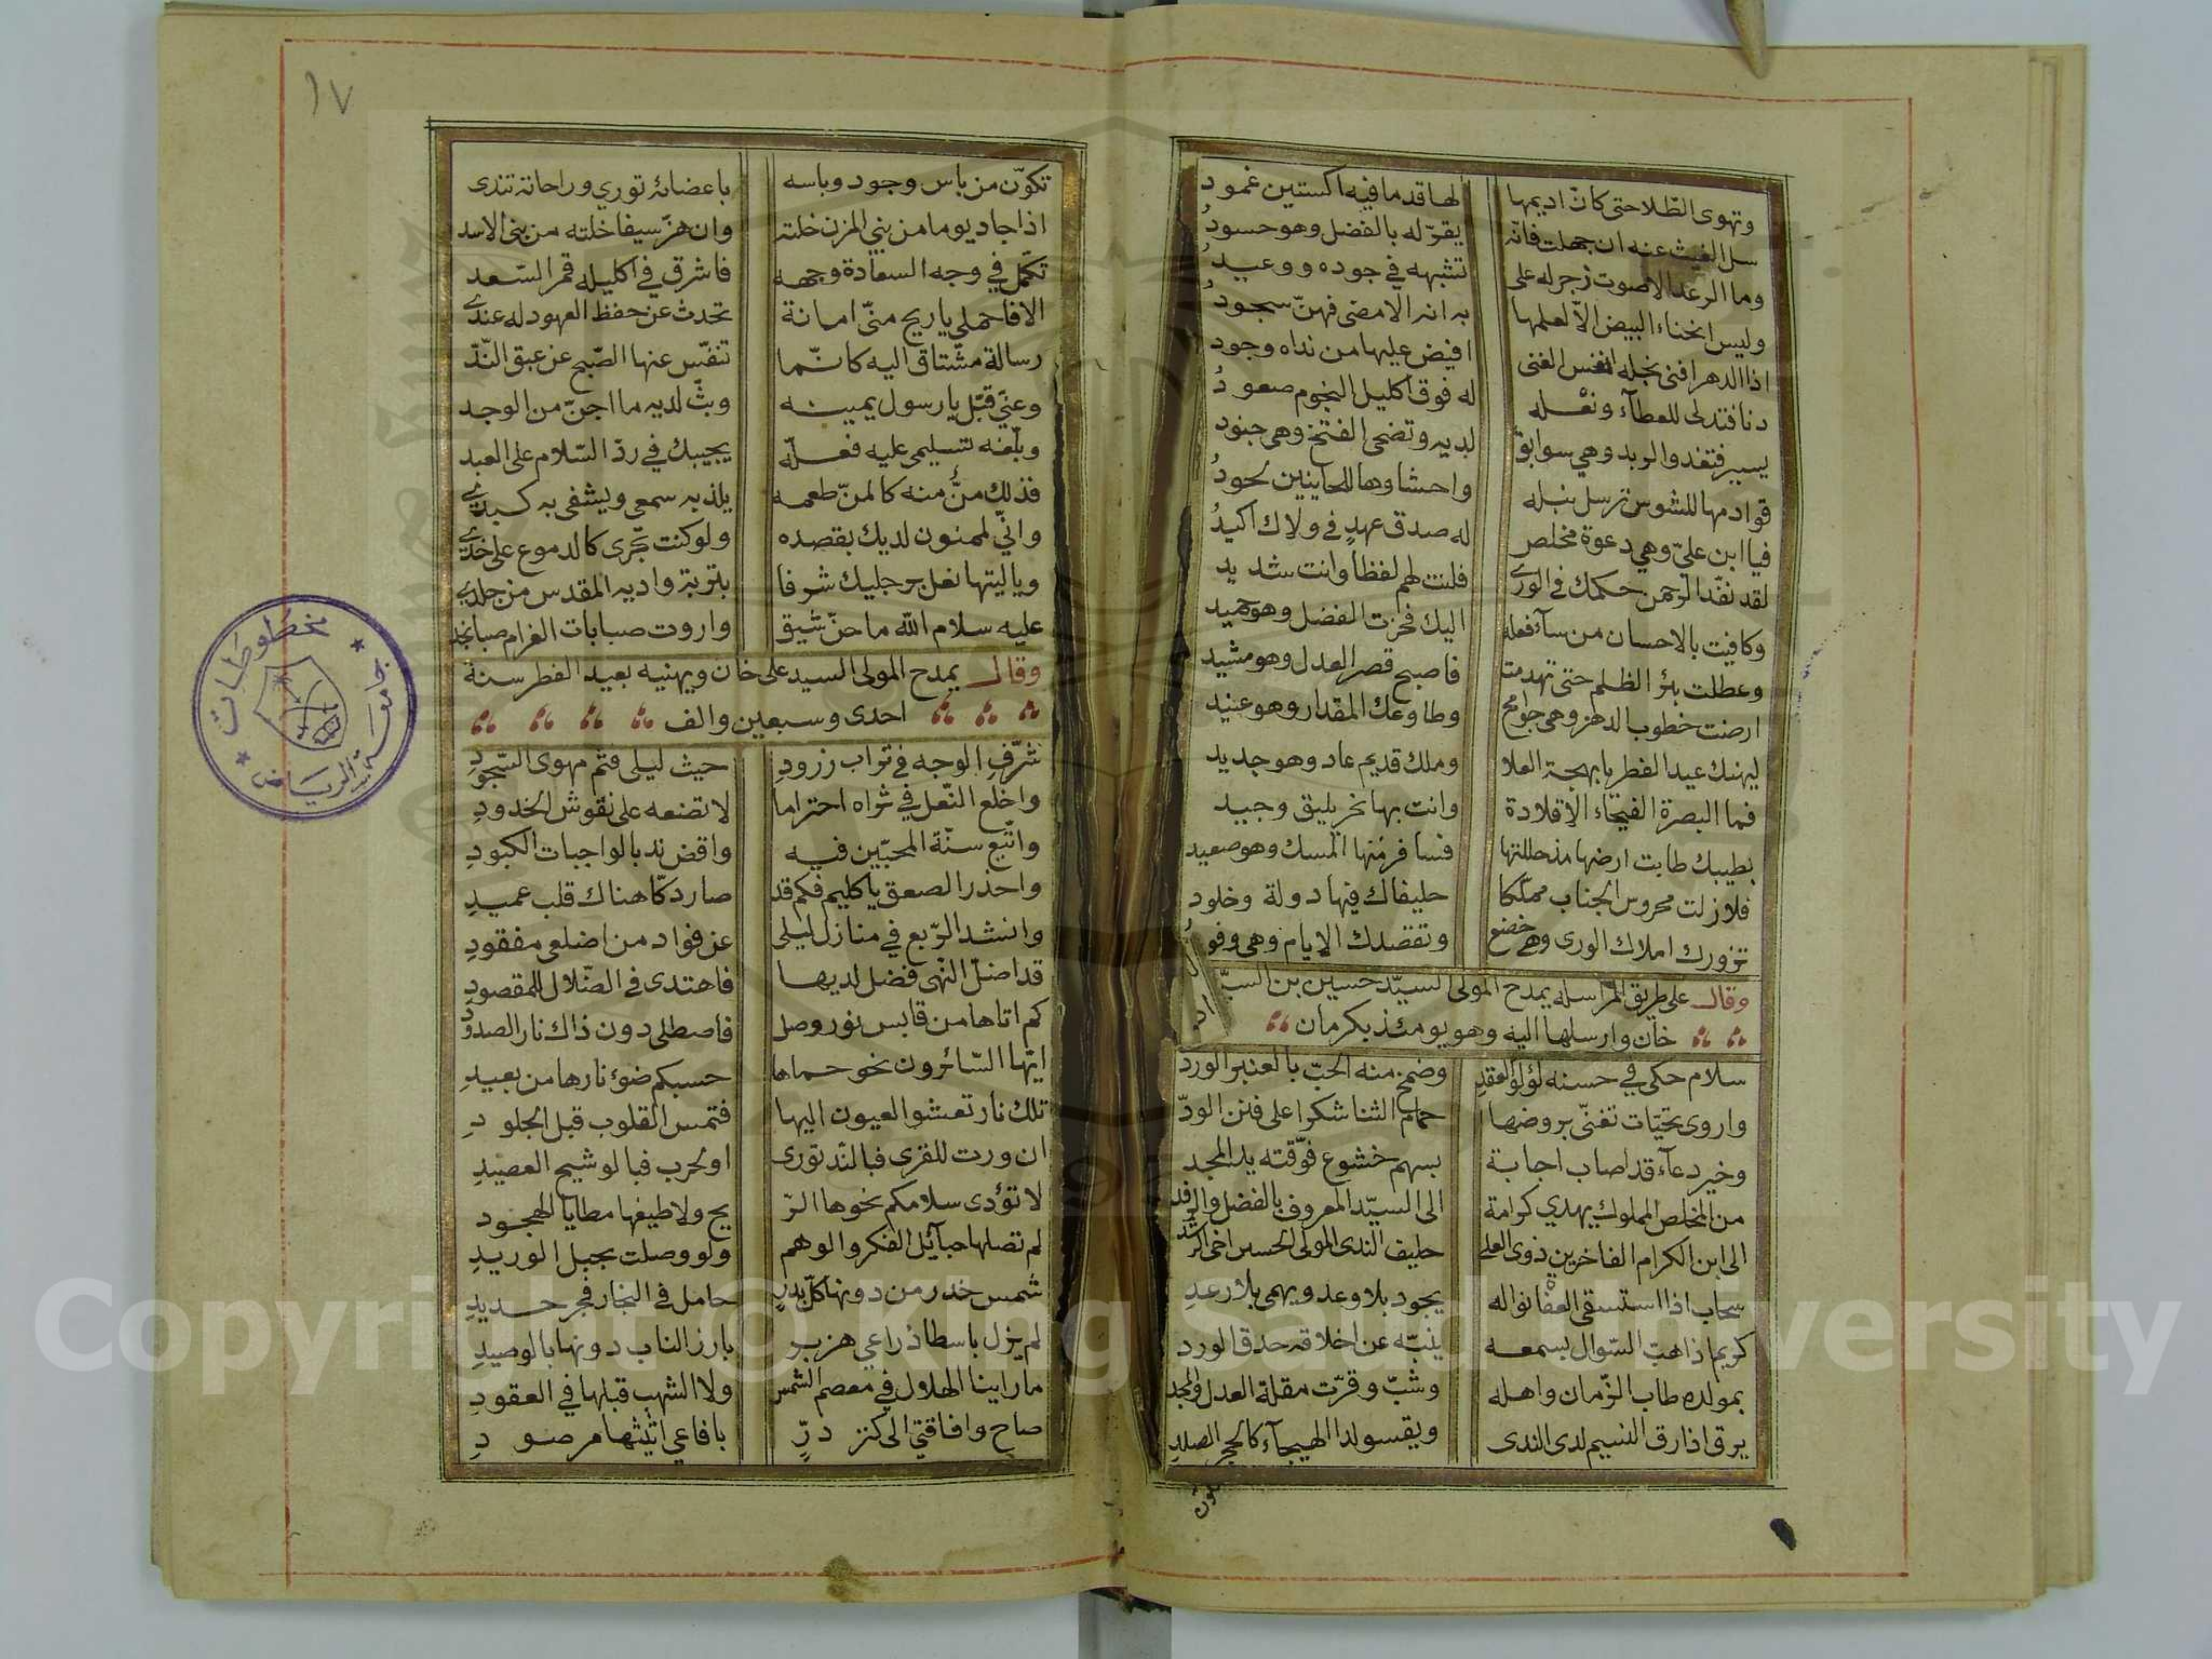 وتهوى الطّلا حتى كانّ اديمها لها قدما فيه اكستين غمود
سل الغيث عنه ان جهلت فانّه يقرّ له بالفضل وهو حسودُ
وما الرعد الا صوت زجر له على تشبهه في جوده ووعيدُ
وليس انحناء البيض الّا لعلمها بانه الامضى فهنّ سجودُ
اذا الدهر افنى نجله انفس الغنى افيض عليها من نداه وجود
دنا فتدلى للعطآء ونعله له فوق اكليل النجوم صعودُ
يسير فتغدوا لربد وهي سوابق لديه وتضحى الفتخ وهى جنود
قوادمها للشوس ترسل نبله واحشاوها للحاينين لحودُ
فيا ابن عليّ وهي دعوة مخلص له صدق عهدٍ في ولاك اكيدُ
لقد نفّذ الرحمن حكمك في الورى فلنت لهم لفظا وانت شديد
وكافيت بالاحسان من سآء فعله اليك فحزت الفضل وهو حميد
وعطلت بئر الظلم حتى تهدمت فاصبح قصر العدل وهو مشيد
ارضت خطوب الدهر وهى جوامح وطاوعك المقدار وهو عنيد
ليهنك عيد الفطر يا بهجة العلا وملك قديم عاد وهو جديد
فما البصرة الفيحاء الّا قلادة وانت بها نحر يليق وجيد
بطيبك طابت ارضها مذ حللتها فسافر منها المسك وهو صعيد
فلا زلت محروس الجناب مملّكا حليفاك فيها دولة وخلود
تزورك املاك الورى وهي خضع وتقصدك الايام وهى وفو
وقال على طريق المراسله يمدح المولى السيّد حسين بن السيّد
خان وارسلها اليه وهو يومئذ بكرمان
سلام حكى في حسنه لؤلؤ العقدِ وضمخ منه الحبّ بالعنبر الورد
واروى تحيّات تغنّى بروضها حمام الثنا شكرا على فنن الودّ
وخير دعآء قد اصاب اجابة بسهم خشوع فوّقته يد المجد
من المخلص المملوك يهدي كرامة الى السيّد المعروف بالفضل والرفد
الى ابن الكرام الفاخرين ذوى العلى حليف الندى المولى الحسين اخى الرشد
سحاب اذا استسقى العفاة نواله يجود بلا وعد ويهمى بلا رعدِ
كريم اذا هبّ السّوال بسمعه ينبّه عن اخلاقه حدق الورد
بمولده طاب الزّمان واهله وشبّ وقرّت مقلة العدل والمجد
يرق اذا رق النسيم لدى الندى ويقسو لدا الهيجآء كالحجر الصلدِ
تكون
١٧
تكوّن من باس وجود وباسه باعضائه توري وراحاته تندى
اذا جاد يوما من بني المزن خلته وان هزّ سيفا خلته من بنى الاسد
تكمّل في وجه السعادة وجهه فاشرق في اكليله قمر السّعد
الا فاحملي يا ريح منّى امانة تحدث عن حفظ العهود له عندي
رسالة مشتاق اليه كانّما تنفّس عنها الصّبح عن عبق النّدّ
وعنّي قبّل يا رسول يمينه وبثّ لديه ما اجنّ من الوجد
وبلّغه تسليمى عليه فعلّه يجيبك في ردّ السّلام على العبد
فذلك منٌّ منه كالمنّ طعمه يلذ به سمعى ويشفى به كبدي
وانّي لممنون لديك بقصده ولو كنت تجرى كالدموع على خدي
ويا ليتها نعل برجليك شرفا بتربة واديه المقدس من جلدي
عليه سلام الله ما حنّ شيق واروت صبابات الغرام صبا نجد
وقال يمدح المولى السيد على خان ويهنيه بعيد الفطر سنة
احدى وسبعين والف
شرّفِ الوجه في تراب زرودِ حيث ليلى فثم مهوى السّجودِ
واخلع النّعل في ثراه احتراما لا تضعه على نقوش الخدودِ
واتّبع سنّة المحبّين فيه واقض ندبا لواجبات الكبودِ
واحذر الصعق يا كليم فكم قد صار دكّا هناك قلب عميدِ
وانشد الرّبع في منازل ليلى عن فواد من اضلعى مفقودِ
قد اضلّ النّهى فضل لديها فاهتدى في الضّلال للمقصودِ
كم اتاها من قابس نور وصل فاصطلى دون ذاك نار الصدودِ
ايّها السّائرون نحو حماها حسبكم ضوء نارها من بعيدِ
تلك نار تعشوا العيون اليها فتمس القلوب قبل الجلودِ
ان ورت للقرى فبالند تورى او لحرب فبالوشيج العصيدِ
لا تؤدى سلامكم نحوها الرّ يح ولا طيفها مطايا الهجود
لم تصلها حبآيل الفكر والوهم ولو وصلت بحبل الوريدِ
شمس خدر من دونها كلّ بدرٍ حامل في النجار فجر حديدِ
لم يزل باسطا ذراعي هزبر بارز الناب دونها بالوصيدِ
ما راينا الهلال في معصم الشمس ولا الشهب قبلها في العقودِ
صاح وافاقتي الى كنز درٍّ بافاعي اثيثها مرصودِ
مخطوطات
جامعة الرياض
Copyright © King Saud University